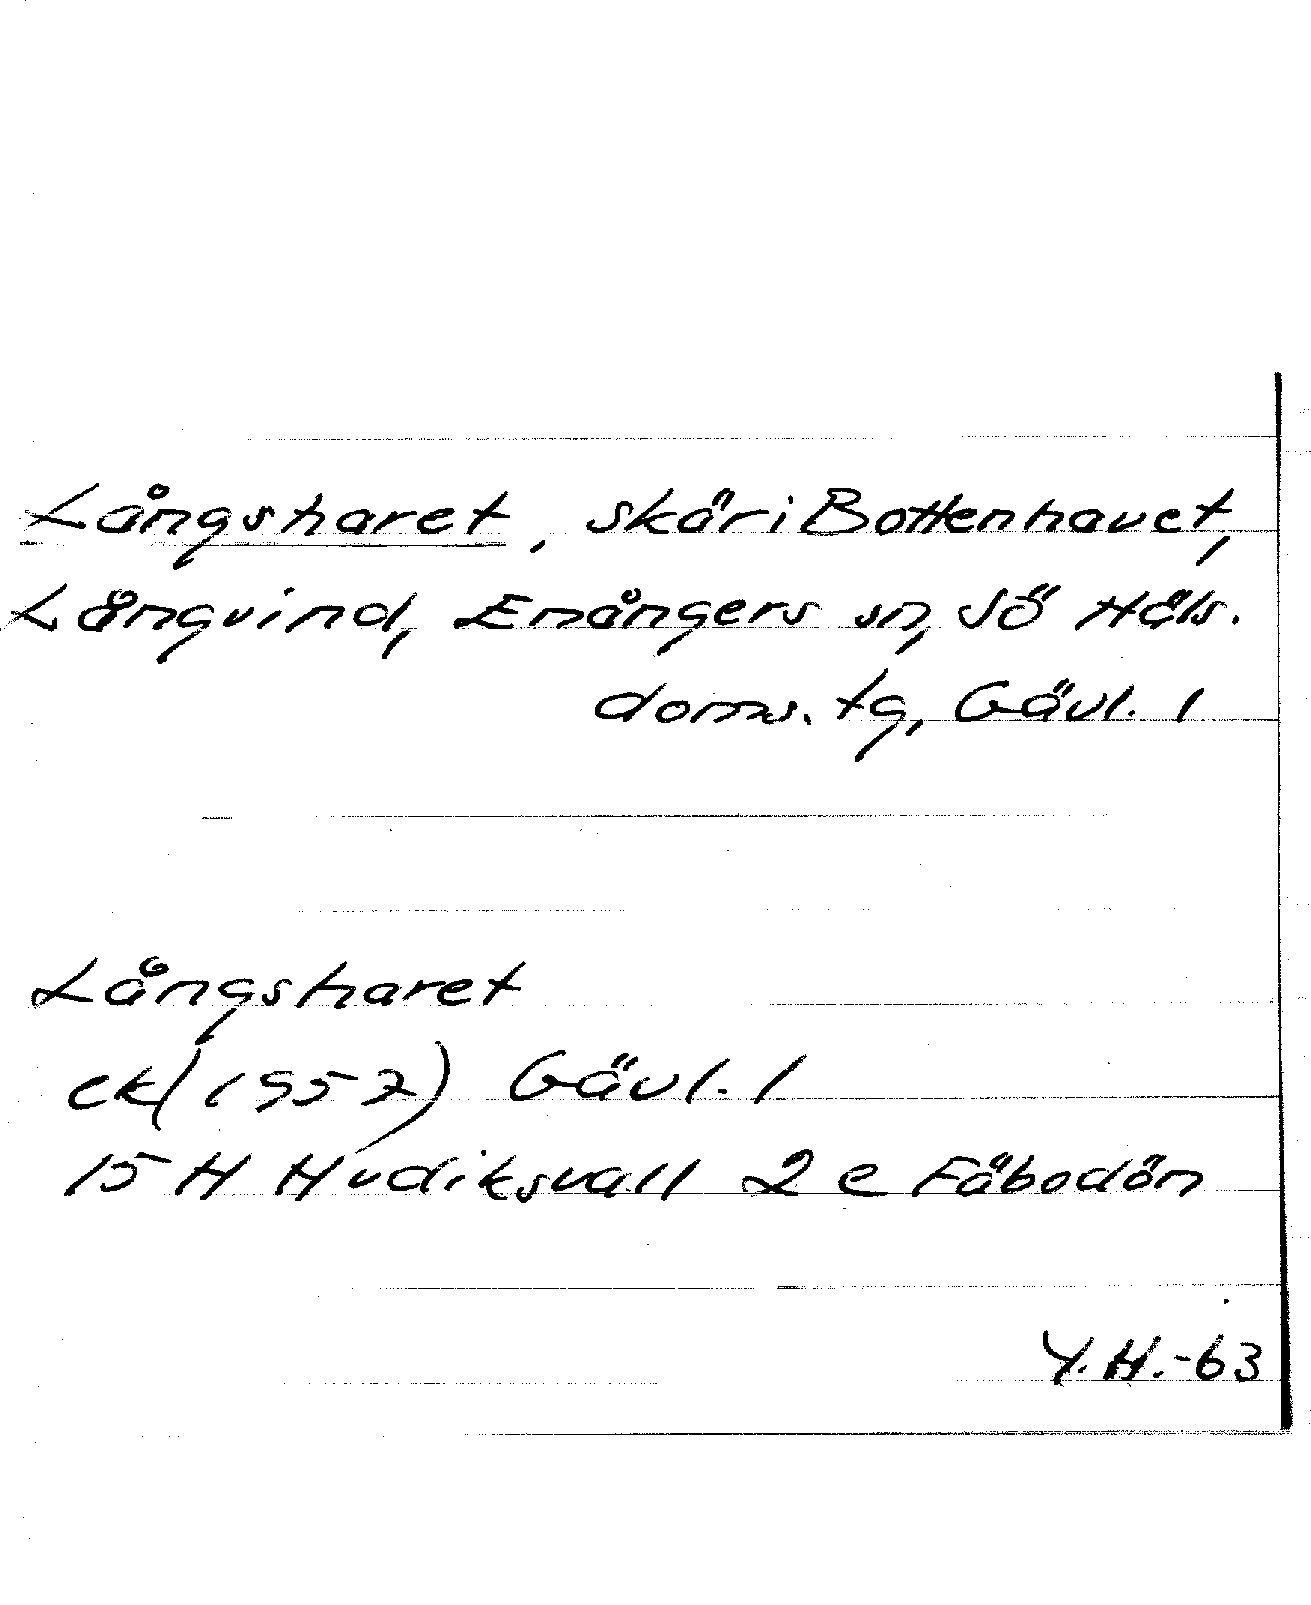 Långsharet, skär i Bottenhavet,
Långvind, Enångers sn, Sö Häls.
doms. tg, Gävl. l
Långsharet
ek (1957) Gävl. l
15 H Hudiksvall 2 e Fäbodön
Y.H.-63